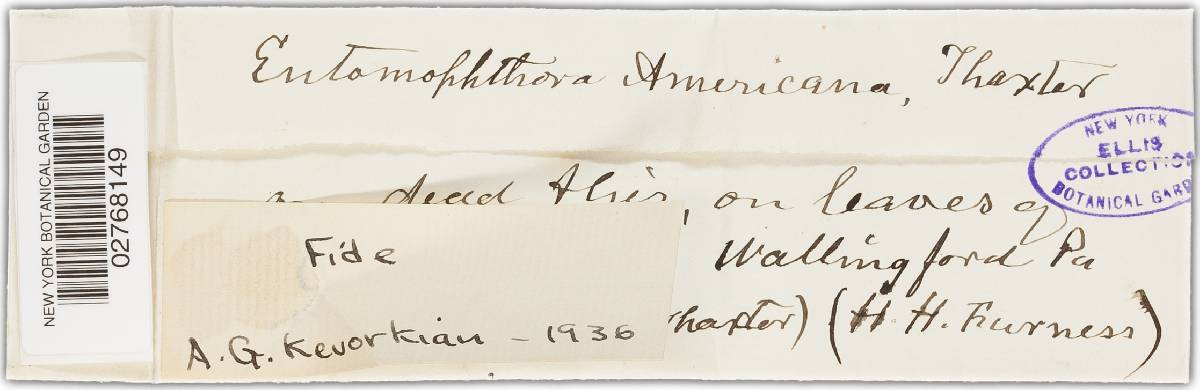 Entomophthora Americana, Thaxter
dead flies, on leaves of
Wallingford Pa
Thaxter) (H. H. Furness)
Fide
A. G. Kevorkian - 1936
NEW YORK
ELLIS
COLLECTION
BOTANICAL GARD
NEW YORK BOTANICAL GARDEN
02768149